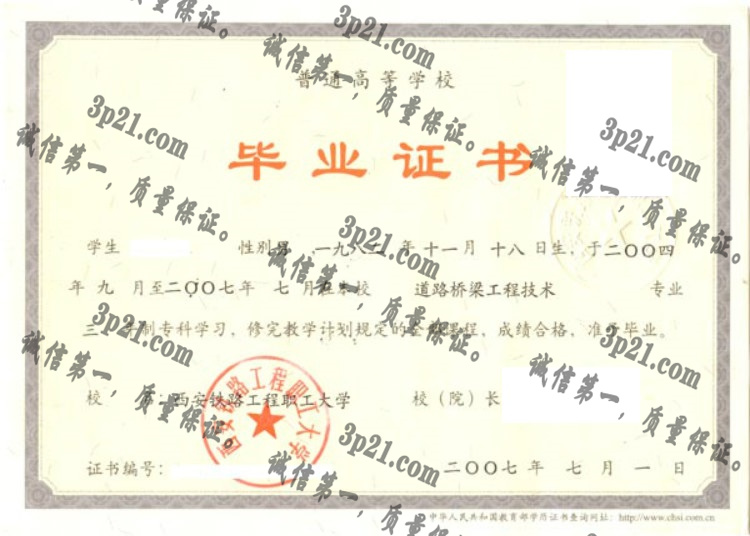 普通高等学校
毕业证书
学生 性别男 一九八二年十一月十八日生，于二〇〇四
年九月至二〇〇七年七月在本校 道路桥梁工程技术 专业
三年制专科学习，修完教学计划规定的全部课程，成绩合格，准予毕业。
校 名：西安铁路工程职工大学 校（院）长
证书编号： 二〇〇七年七月一日
中华人民共和国教育部学历证书查询网址：http://www.chsi.com.cn
西安铁路工程职工大学
3p21.com
诚信第一，质量保证。
3p21.com
诚信第一，质量保证。
3p21.com
诚信第一，质量保证。
3p21.com
诚信第一，质量保证。
3p21.com
诚信第一，质量保证。
3p21.com
诚信第一，质量保证。
3p21.com
诚信第一，质量保证。
3p21.com
诚信第一，质量